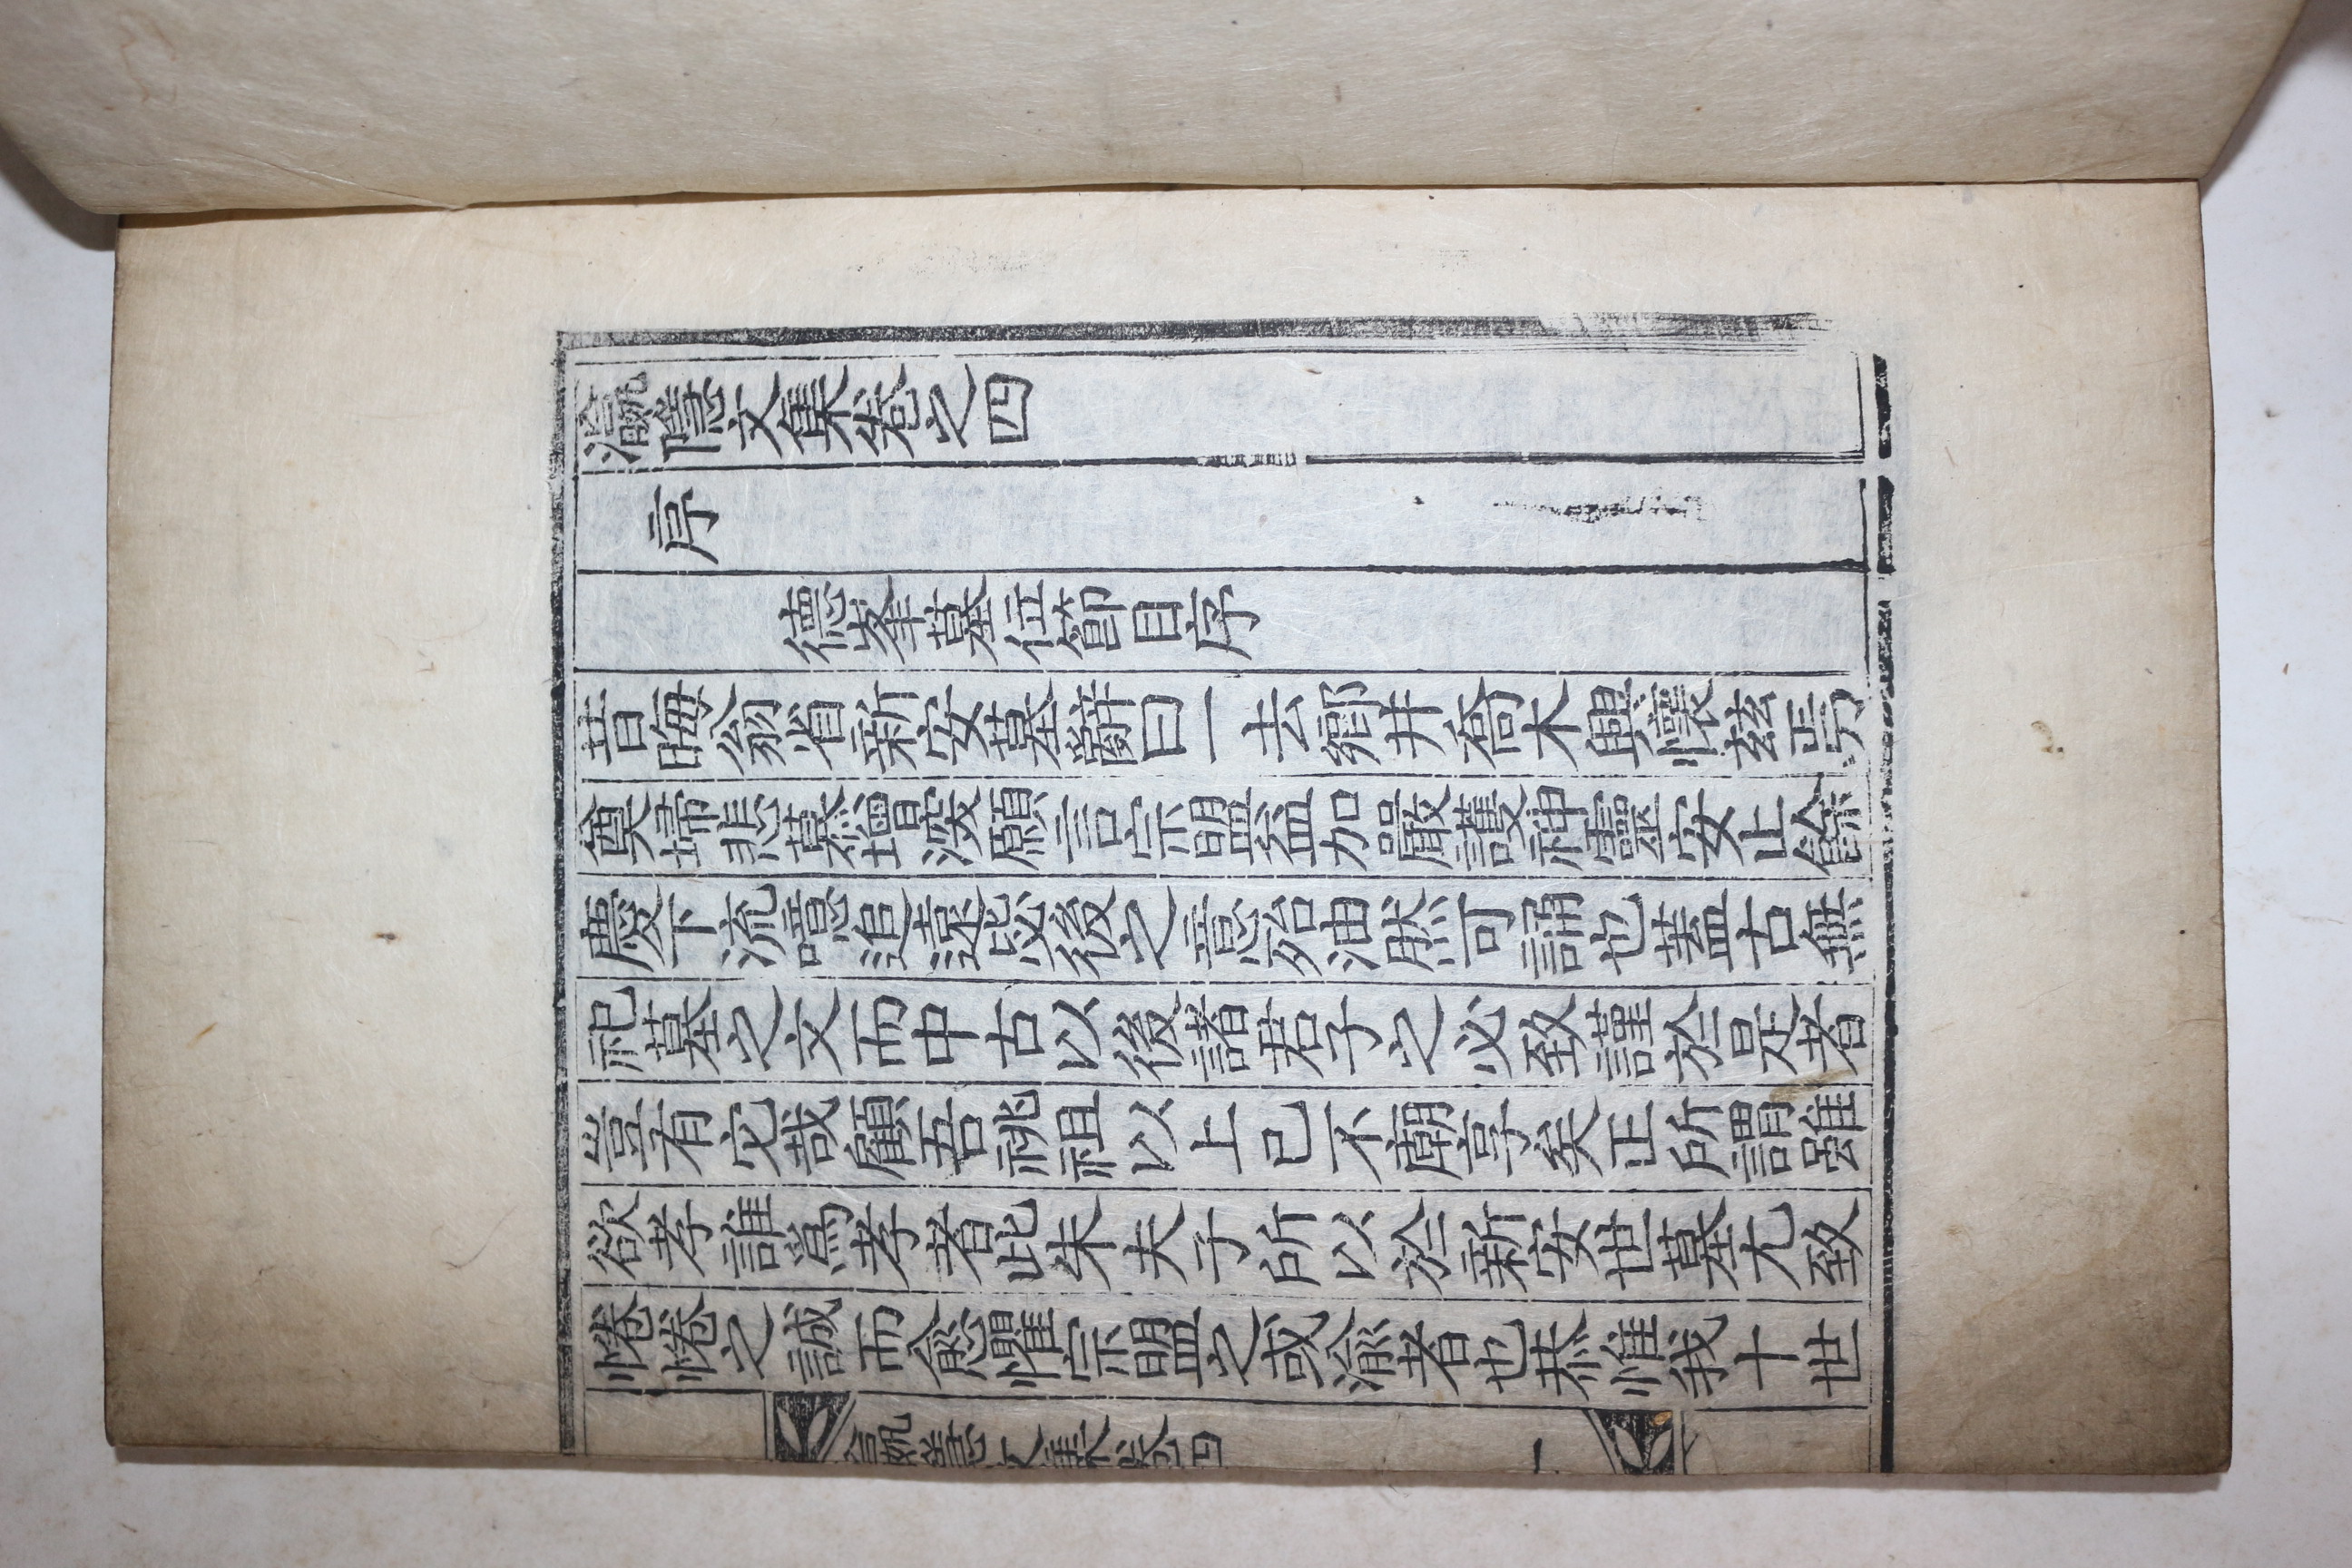 隱文集卷之四
序
德峯墓位節目序
昔晦翁省新安墓辭曰一去鄕井喬木興懷玆焉
奠掃悲慕增深願言宗盟益加嚴護神靈安止餘
慶下流噫追遠毖後之意殆油然可誦也盖古無
祀墓之文而中古以後諸君子之必致謹於是者
豈有它哉顧吾祧祖以上已不廟享矣正所謂雖
欲孝誰爲孝者此朱夫子所以於新安世墓尤致
惓惓之誠而愈懼宗盟之或渝者也恭惟我十世
隱文集卷四 一